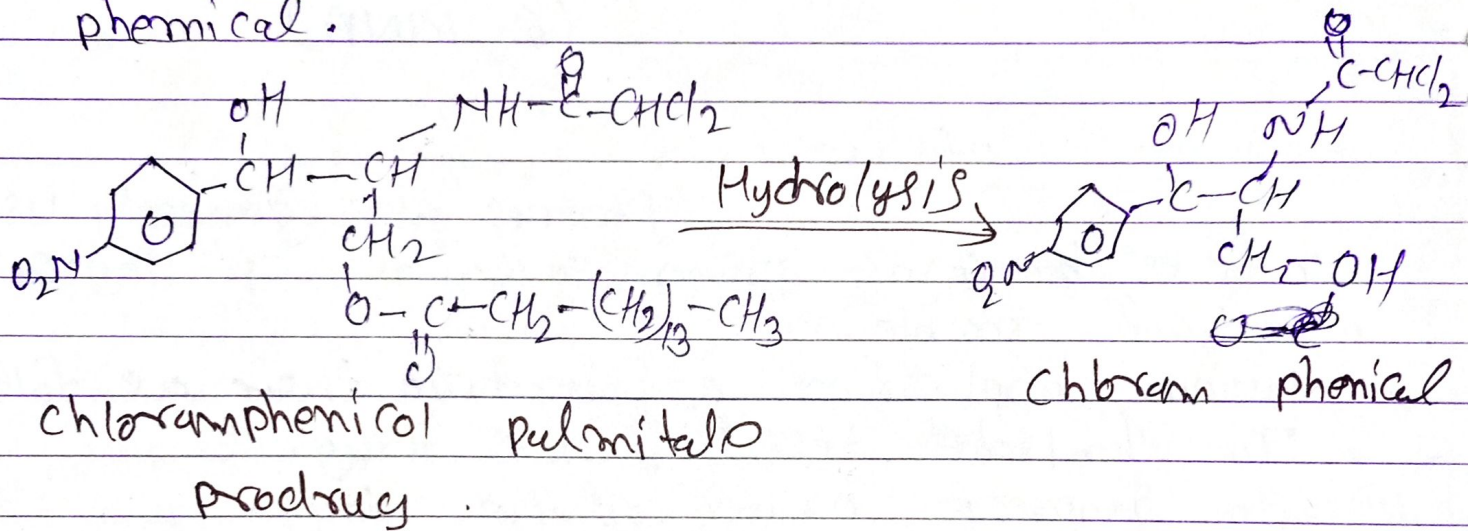 phemical.
OH NH-C-CHCl2
O
CH-CH
O2N
CH2
O-C-CH2-(CH2)13-CH3
O
Hydrolysis
O
C-CHCl2
OH NH
C-CH
O2N
CH2-OH
chloramphenicol palmitate
prodrug.
Chloram phenical